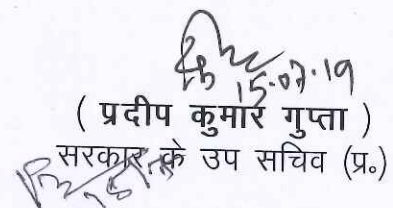 15.07.19
( प्रदीप कुमार गुप्ता )
सरकार के उप सचिव (प्र०)